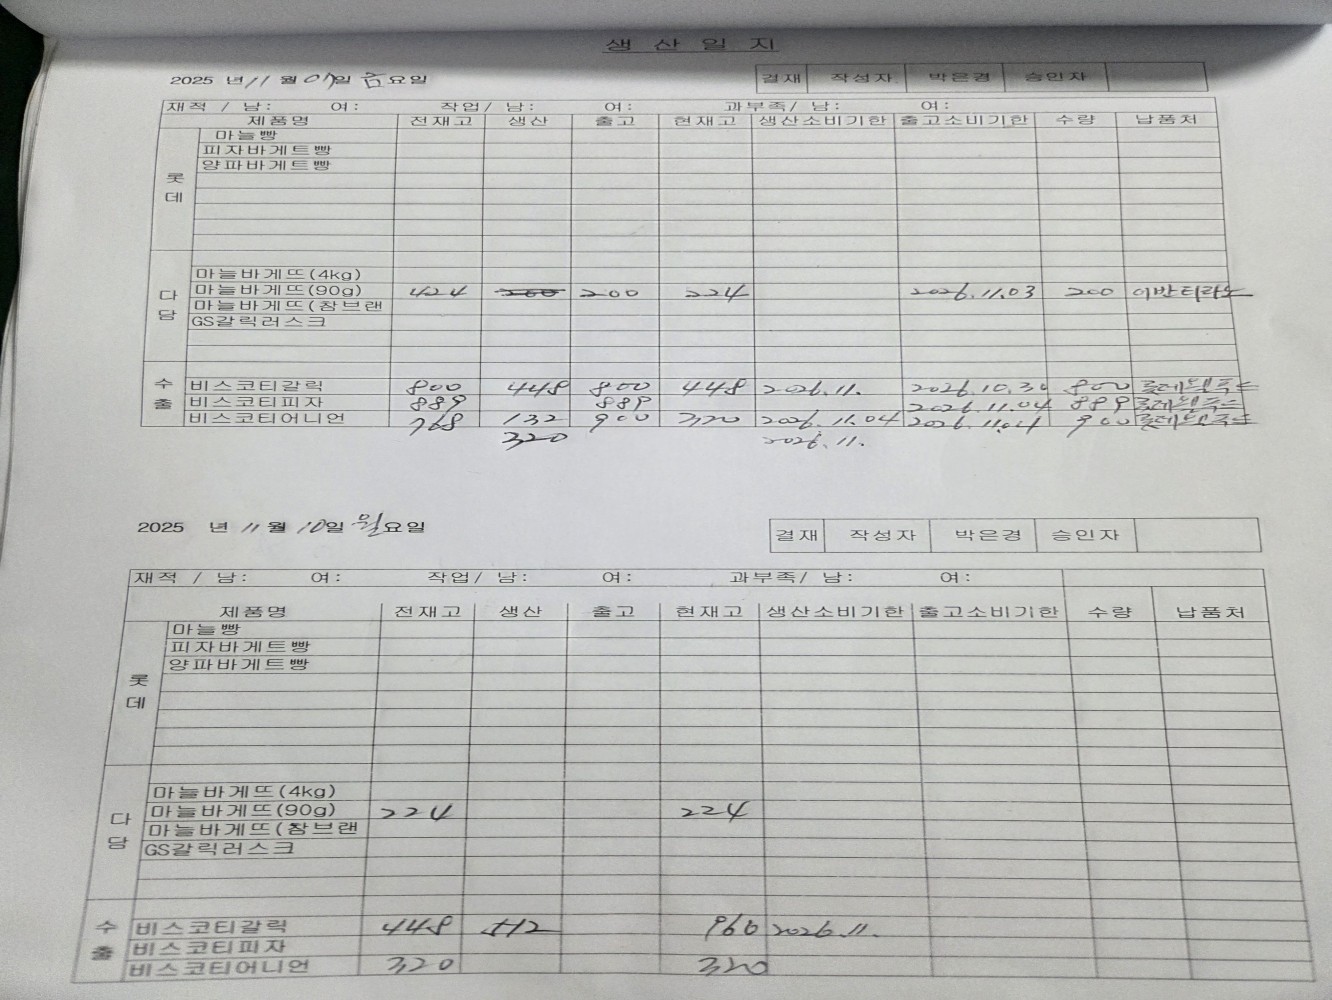 생 산 일 지
2025 년 11 월 07일 금요일 결재 작성자 박은경 승인자
재적 / 남: 여: 작업/ 남: 여: 과부족/ 남: 여:
제품명 전재고 생산 출고 현재고 생산소비기한 출고소비기한 수량 납품처
롯데
마늘빵
피자바게트빵
양파바게트빵
다당
마늘바게뜨(4kg)
마늘바게뜨(90g) 424 200 200 224 2026.11.03 200 이반티라노
마늘바게뜨(참브랜
GS갈릭러스크
수출
비스코티갈릭 800 448 800 448 2026.11. 2026.10.30 800 롯데웰푸드
비스코티피자 889 889 2026.11.04 889 롯데웰푸드
비스코티어니언 768 132 900 320 2026.11.04 2026.11.04 900 롯데웰푸드
320 2026.11.
2025 년 11 월 10일 월요일 결재 작성자 박은경 승인자
재적 / 남: 여: 작업/ 남: 여: 과부족/ 남: 여:
제품명 전재고 생산 출고 현재고 생산소비기한 출고소비기한 수량 납품처
롯데
마늘빵
피자바게트빵
양파바게트빵
다당
마늘바게뜨(4kg)
마늘바게뜨(90g) 224 224
마늘바게뜨(참브랜
GS갈릭러스크
수출
비스코티갈릭 448 512 960 2026.11.
비스코티피자
비스코티어니언 320 320